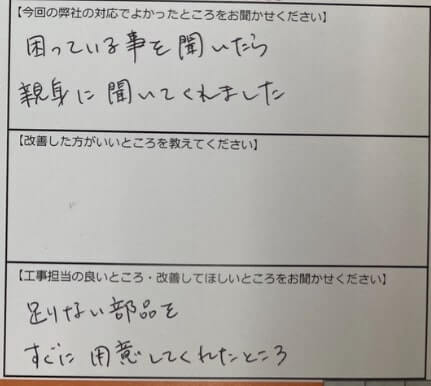 【今回の弊社の対応でよかったところをお聞かせください】
困っている事を聞いたら
親身に聞いてくれました
【改善した方がいいところを教えてください】
【工事担当の良いところ・改善してほしいところをお聞かせください】
足りない部品を
すぐに用意してくれたところ